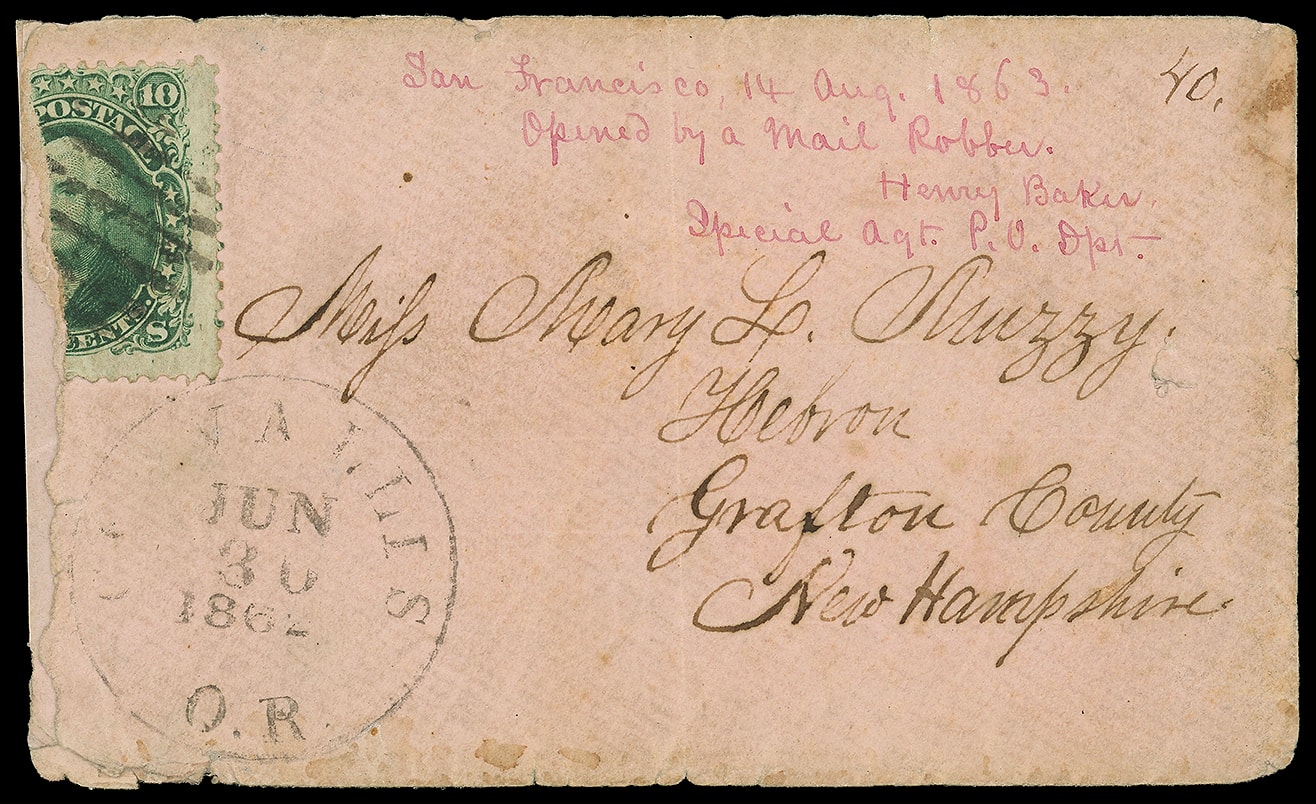 10
POSTAGE
CENTS.
S
San Francisco, 14 Aug. 1863.
Opened by a Mail Robber.
Henry Baker.
Special Agt. P. O. Dpt.
40.
Miss Mary L. Muzzy.
Hebron
Grafton County
New Hampshire.
VALLIS
JUN
30
1862
O.R.